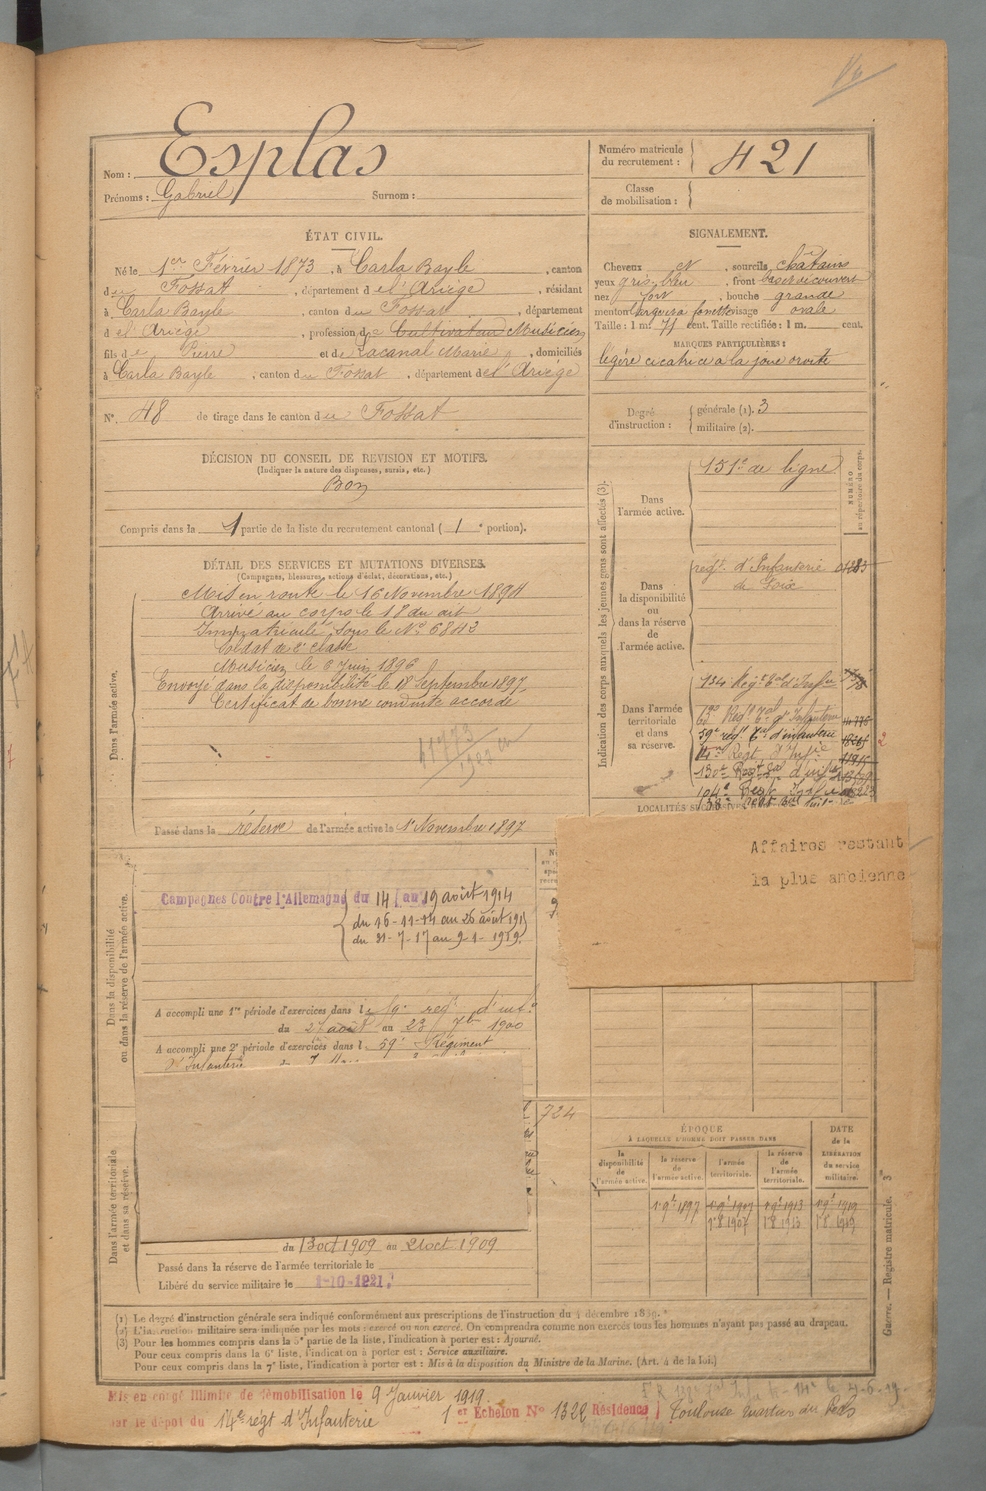 Esplas
Nom :
Prénoms : Gabriel Surnom :
Numéro matricule du recrutement : 421
Classe de mobilisation :
ÉTAT CIVIL.
Né le 1er Février 1873, à Carla Bayle, canton
du Fossat, département de l'Ariège, résidant
à Carla Bayle, canton du Fossat, département
d el Ariège, profession de Cultivateur Musicien
fils de Pierre et de Lacanal Marie, domiciliés
à Carla Bayle, canton du Fossat, département de l'Ariège
N° 48 de tirage dans le canton du Fossat
DÉCISION DU CONSEIL DE REVISION ET MOTIFS.
(Indiquer la nature des dispenses, sursis, etc.)
Bon
Compris dans la 1 partie de la liste du recrutement cantonal (1e portion).
DÉTAIL DES SERVICES ET MUTATIONS DIVERSES.
(Campagnes, blessures, actions d'éclat, décorations, etc.)
Dans l'armée active.
Mis en route le 16 Novembre 1894
Arrivé au corps le 18 du dit
Immatriculé sous le N° 6843
Soldat de 2e classe
Musicien le 6 Juin 1896
Envoyé dans la disponibilité le 18 Septembre 1897
Certificat de bonne conduite accordé
Passé dans la réserve de l'armée active le 1 Novembre 1897
Dans la disponibilité
ou dans la réserve de l'armée active.
Campagnes Contre l'Allemagne du 14 au 19 août 1914
du 16-11-14 au 26 août 191
du 31-7-17 au 9-1-1919.
A accompli une 1re période d'exercices dans l
du 27 août au 23 7bre 1900
A accompli une 2e période d'exercices dans l 59e Régiment
d'Infanterie
724
Dans l'armée territoriale
et dans sa réserve.
du 13 oct 1909 au 21 oct 1909
Passé dans la réserve de l'armée territoriale le
Libéré du service militaire le 1-10-1921
SIGNALEMENT.
Cheveux ct, sourcils châtains
yeux gris bleu, front bas et découvert
nez fort, bouche grande
menton large à fossette visage ovale
Taille : 1 m. 71 cent. Taille rectifiée : 1 m. cent.
MARQUES PARTICULIÈRES :
légère cicatrice a la joue droite
Degré d'instruction : générale (1). 3
militaire (2).
Indication des corps auxquels les jeunes gens sont affectés (3).
NUMÉRO au répertoire du corps.
Dans l'armée active. 151e de ligne
Dans la disponibilité ou dans la réserve de l'armée active.
regt. d'Infanterie
de Foix
Dans l'armée territoriale et dans sa réserve.
134e Regt tal d'Infie
59e regt tal d'infanterie
LOCALITÉS SUCCESSIVES
Affaires restant
la plus ancienne
ÉPOQUE
À LAQUELLE L'HOMME DOIT PASSER DANS
la disponibilité de l'armée active.
la réserve de l'armée active.
l'armée territoriale.
la réserve de l'armée territoriale.
DATE de la LIBÉRATION du service militaire.
1 9bre 1897
1 8 1907
1 8 1913
1 8 1919
Guerre. — Registre matricule. 3
(1) Le degré d'instruction générale sera indiqué conformément aux prescriptions de l'instruction du 4 décembre 1889.
(2) L'instruction militaire sera indiquée par les mots : exercé ou non exercé. On comprendra comme non exercés tous les hommes n'ayant pas passé au drapeau.
(3) Pour les hommes compris dans la 5e partie de la liste, l'indication à porter est : Ajourné.
Pour ceux compris dans la 6e liste, l'indication à porter est : Service auxiliaire.
Pour ceux compris dans la 7e liste, l'indication à porter est : Mis à la disposition du Ministre de la Marine. (Art. 4 de la loi.)
Mis en congé illimité de démobilisation le 9 Janvier 1919
par le dépot du 14e regt d'Infanterie 1er Echelon N° 1322 Résidence Toulouse